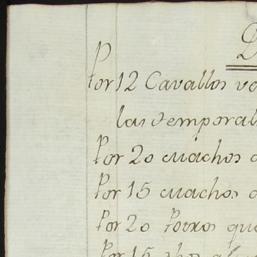 P
Por 12 Cavallos va
las temporal
Por 20 cuachos a
Por 15 cuachos a
Por 20 Potros que
Por 15